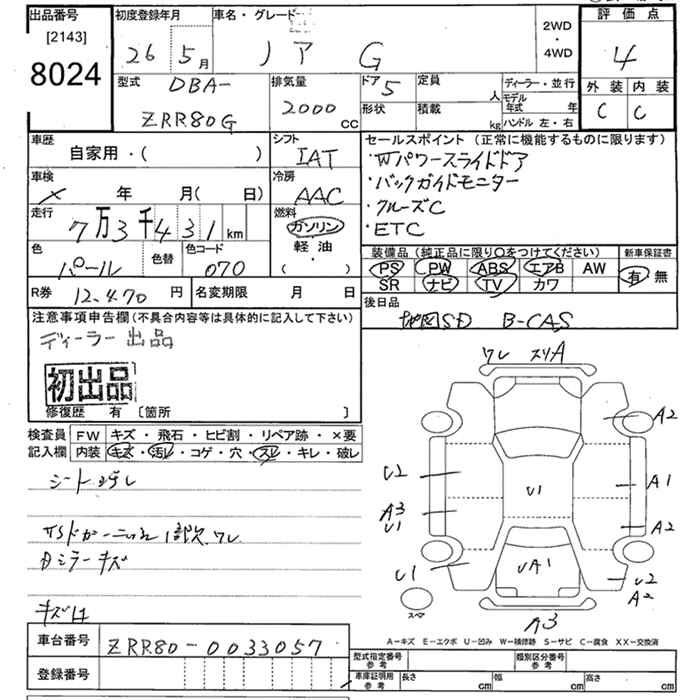 出品番号 初度登録年月 車名・グレード 2WD・4WD 評価点
[2143]
8024
26年 5月 ノア G
4
型式 DBA-
ZRR80G
排気量 2000cc
ドア 5 定員 人 ディーラー・並行
形状 積載 kg モデル年式 年
ハンドル 左・右
外装 内装
C C
車歴 自家用・( )
シフト IAT
セールスポイント (正常に機能するものに限ります)
・Wパワースライドドア
・バックガイドモニター
・クルーズC
・ETC
車検 × 年 月( 日)
冷房 AAC
走行 7万3千431km
燃料 ガソリン
軽油・
( )
色 パール 色替 色コード 070
装備品 (純正品に限り○をつけてください) 新車保証書
PS PW ABS エアB AW 有・無
SR ナビ TV カワ
R券 12,470円 名変期限 月 日
後日品
地図SD B-CAS
注意事項申告欄(不具合内容等は具体的に記入して下さい)
ディーラー出品
初出品
修復歴 有 [箇所 ]
検査員 FW キズ・飛石・ヒビ割・リペア跡・×要
記入欄 内装 キズ・汚レ・コゲ・穴・スレ・キレ・破レ
シート汚レ
1部欠、ワレ
ミラーキズ
キズ
ワレ スリA
A2
U2
A1
U1
A3
U1
A2
U1
UA1
U2
A2
スペア
A3
A-キズ E-エクボ U-凹み W-補修跡 S-サビ C-腐食 XX-交換済
車台番号 ZRR80-0033057
登録番号
型式指定番号 参考 類別区分番号 参考
車庫証明用 参考 長さ cm 幅 cm 高さ cm